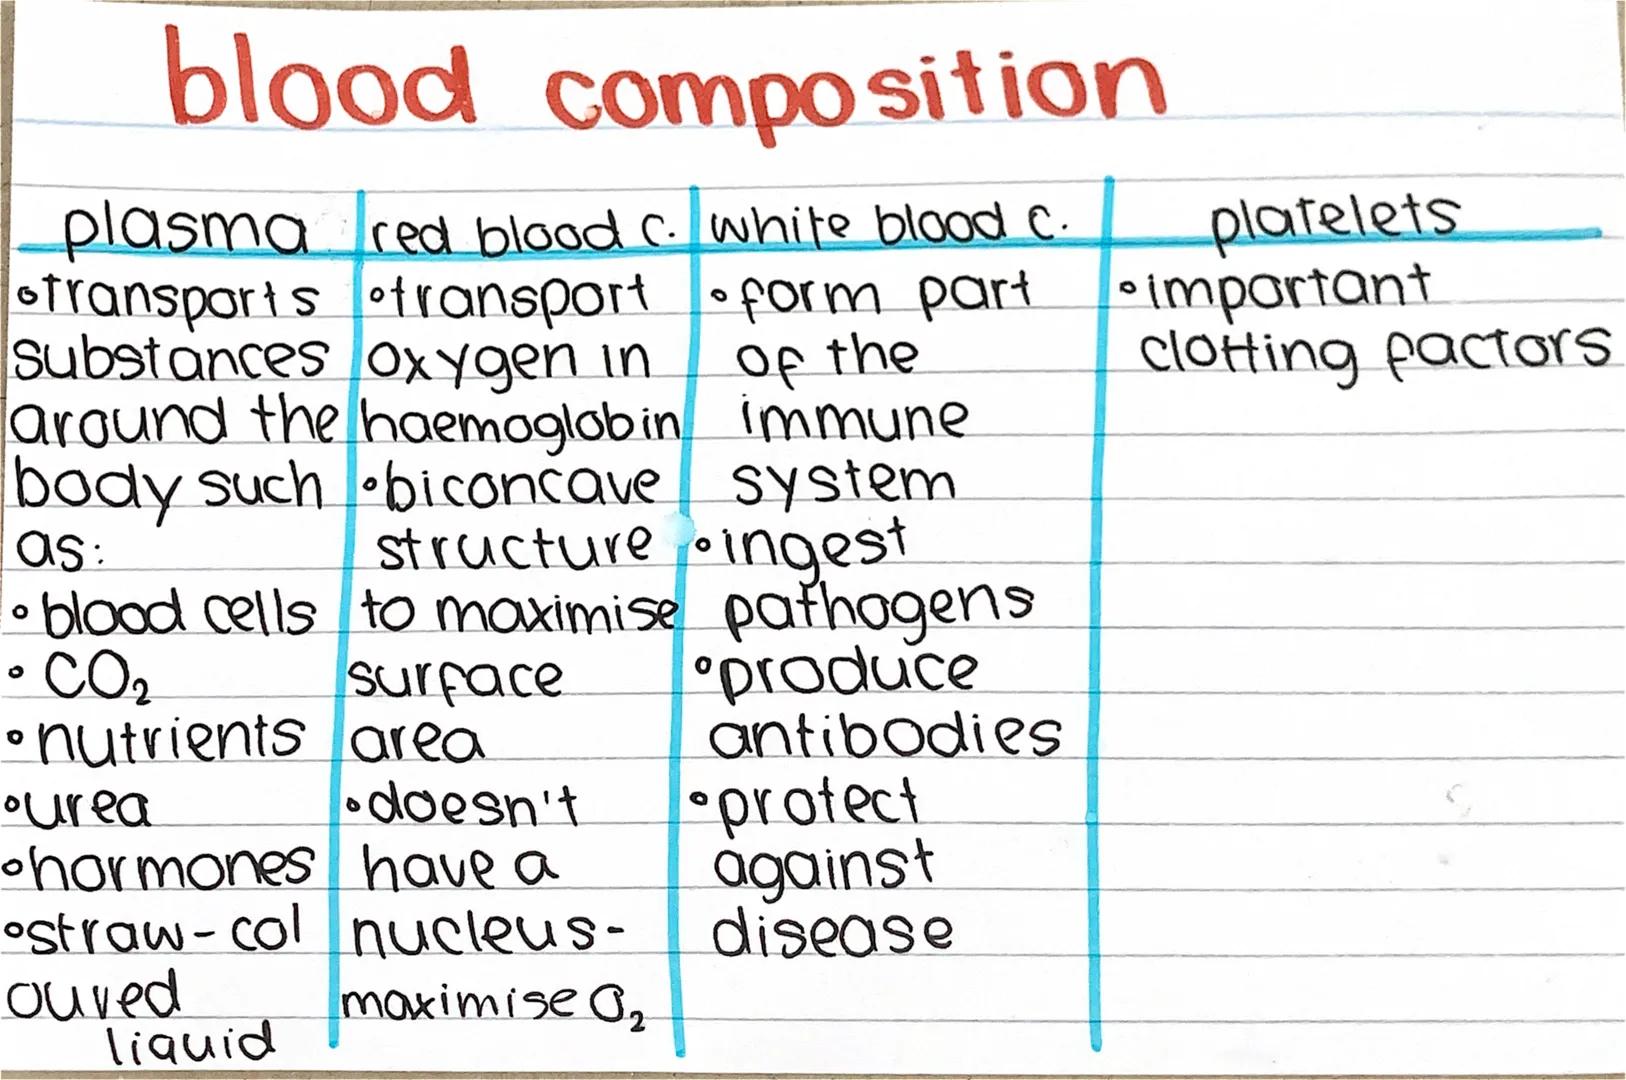 blood composition
plasma
otransports
substances
around the
body such
as:
• blood cells
• CO₂
• nutrients
• urea
• hormones
• straw-col
oured
liquid
red blood c.
• transport
oxygen in
haemoglobin
• biconcave
structure
to maximise
surface
area
• doesn't
have a
nucleus-
maximise O₂
white blood c.
• form part
of the
immune
system
• ingest
pathogens
• produce
antibodies
• protect
against
disease
platelets
• important
clotting factors